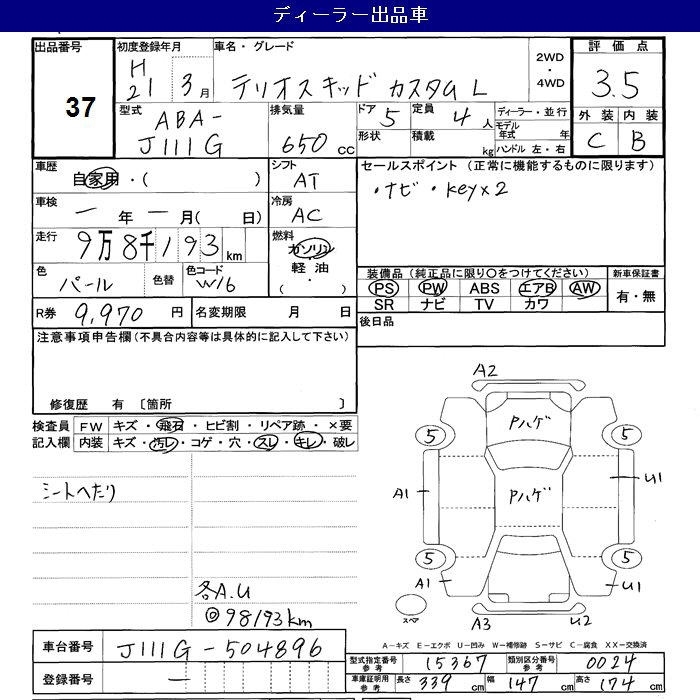 ディーラー出品車
出品番号 37
初度登録年月 H21 3月
車名・グレード テリオスキッド カスタムL
2WD・4WD
評価点 3.5
型式 ABA-J111G
排気量 650cc
ドア 5 定員 4人
形状 積載 kg
ディーラー・並行
モデル年式 年
ハンドル 左・右
外装 内装
C B
車歴 自家用・( )
シフト AT
セールスポイント (正常に機能するものに限ります)
・ナビ・keyx2
車検 ー年ー月( 日)
冷房 AC
走行 9万8千193km
燃料 ガソリン 軽油 ( ・ )
色 パール 色替 色コード W16
装備品(純正品に限り○をつけてください) 新車保証書
PS PW ABS エアB AW 有・無
SR ナビ TV カワ
R券 9,970円 名変期限 月 日
後日品
注意事項申告欄(不具合内容等は具体的に記入して下さい)
修復歴 有 〔箇所 〕
検査員記入欄
FW キズ・飛石・ヒビ割・リペア跡・×要
内装 キズ・汚レ・コゲ・穴・スレ・キレ・破レ
シートへたり
各A.U
◎98193km
A2
Pハゲ
5 5
A1 Pハゲ U1
5 5
A1 U1
スペア
A3 U2
A-キズ E-エクボ U-凹み W-補修跡 S-サビ C-腐食 XX-交換済
車台番号 J111G-504896
登録番号 ー
型式指定番号参考 15367 類別区分番号参考 0024
車庫証明用参考 長さ 339cm 幅 147cm 高さ 174cm